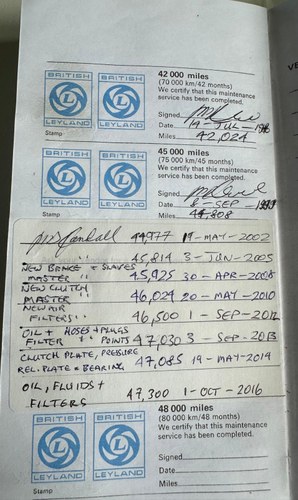 BRITISH BRITISH
LEYLAND LEYLAND
Stamp
42 000 miles
(70 000 km/42 months)
We certify that this maintenance
service has been completed.
Signed
Date 19 - JUL - 19
Miles 42,024
BRITISH BRITISH
LEYLAND LEYLAND
Stamp
45 000 miles
(75 000 km/45 months)
We certify that this maintenance
service has been completed.
Signed
Date 8 - SEP - 1999
Miles 44,808
44,777 19 - MAY - 2002
" 45,814 3 - JUN - 2005
NEW BRAKE + SLAVES
MASTER " 45,925 30 - APR - 2008
NEW CLUTCH
MASTER " 46,029 20 - MAY - 2010
NEW AIR
FILTERS " 46,500 1 - SEP - 2012
OIL + HOSES + PLUGS
FILTER " POINTS 47,030 3 - SEP - 2013
CLUTCH PLATE, PRESSURE
REL. PLATE + BEARING 47,085 19 - MAY - 2014
OIL, FLUIDS +
FILTERS 47,300 1 - OCT - 2016
BRITISH BRITISH
LEYLAND LEYLAND
Stamp
48 000 miles
(80 000 km/48 months)
We certify that this maintenance
service has been completed.
Signed
Date
Miles